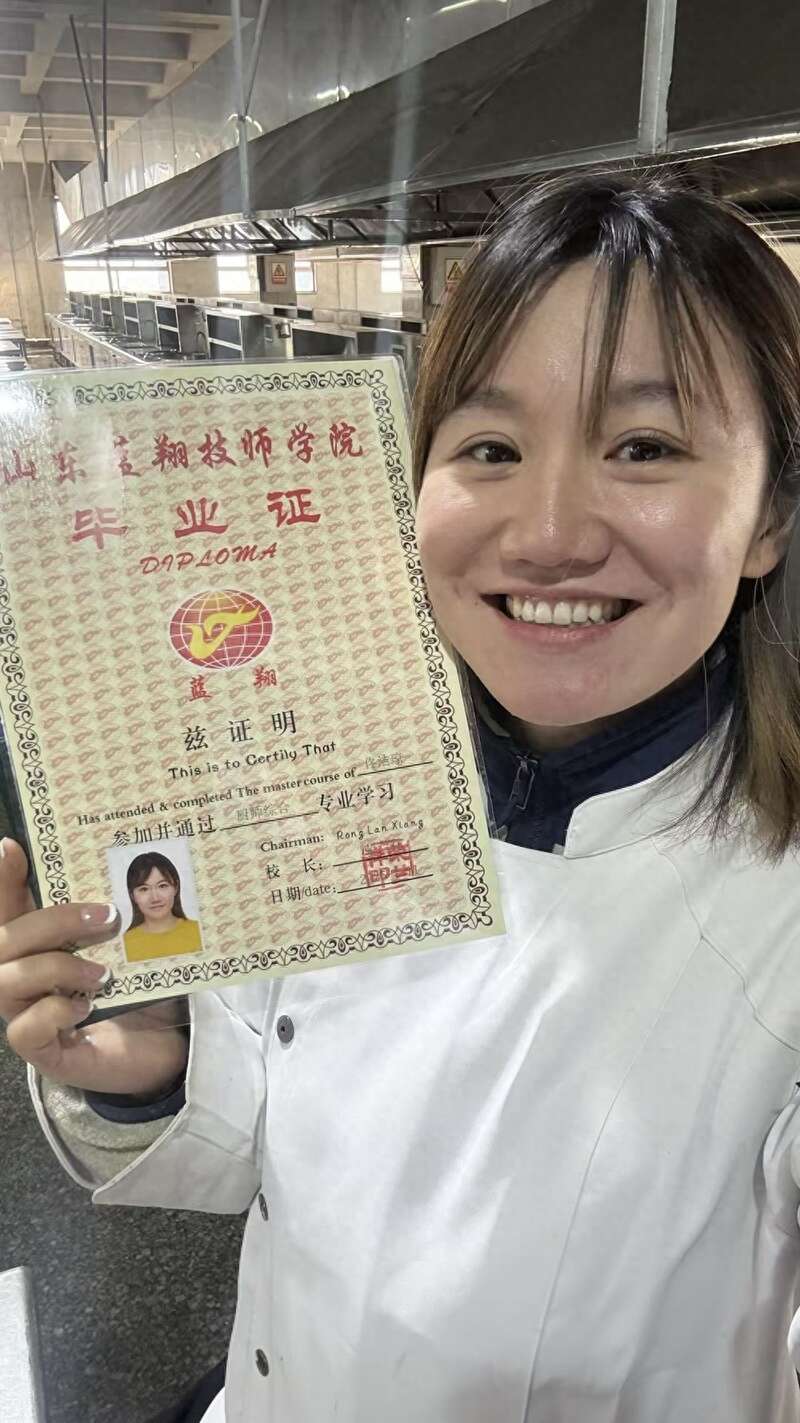 山东蓝翔技师学院
毕业证
DIPLOMA
蓝翔
兹证明
This is to Certily That
Has attended & completed The master course of
参加并通过 厨师综合 专业学习
Chairman: Rong Lan Xiang
校 长:
日期/date: